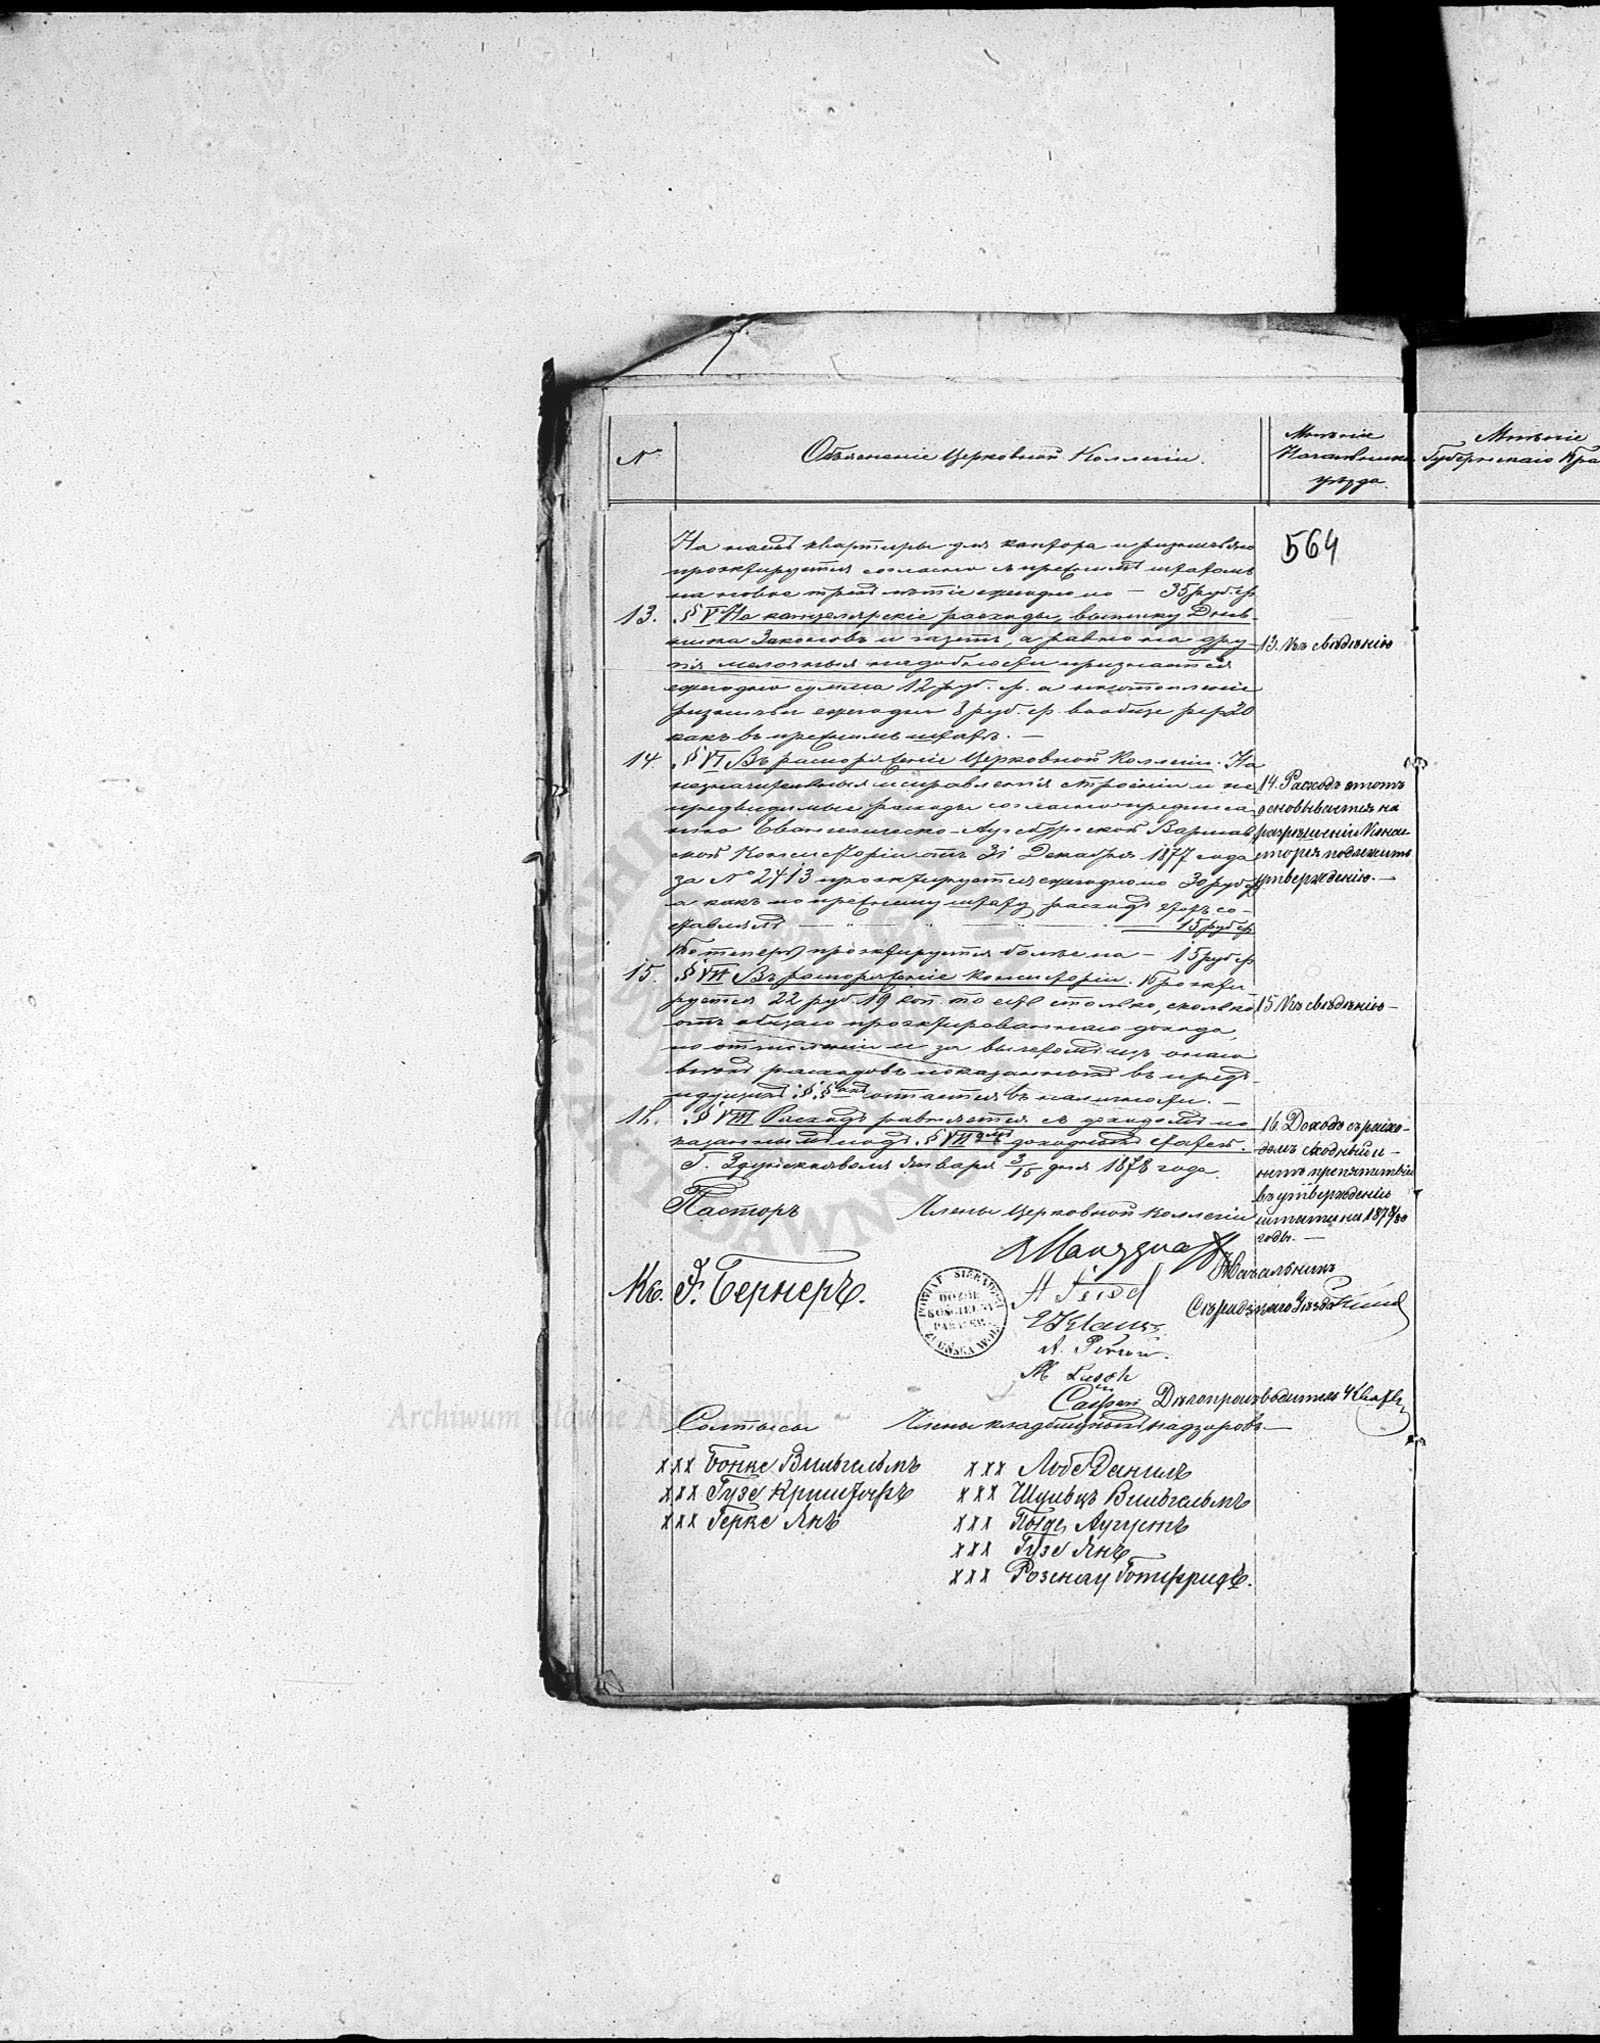 №
Объясненіе Церковной Коллегіи.
Мнѣніе
Начальника
уѣзда.
Мнѣніе
Губернскаго Пра
564
На наемъ квартиры для кантора и ризничаго
проэктируется согласно съ прежнимъ штатомъ
на новое трехлѣтіе ежегодно по — 35 руб. ср.
13. § V На канцелярскіе расходы, выписку Днев-
ника Законовъ и газетъ, а равно на дру-
гія мелочныя надобности признается
ежегодно сумма 12 руб. ср. а на отопленіе
ежегодно 8 руб. ср. вообще рср. 20
какъ въ прежнемъ штатѣ. —
13. Къ свѣдѣнію
14. § VI Въ распоряженіе Церковной Коллегіи. На
незначительныя исправленія строеніи и не-
предвидимые расходы согласно предписа-
нію Евангелическо-Аугсбургской Варшав-
ской Консисторіи отъ 31 Декабря 1877 года
за № 2413 проэктируется ежегодно по 30 руб. ср.
а какъ по прежнему штату расходъ этотъ со-
ставлялъ — 15 руб. ср.
То теперь проэктируется болѣе на — 15 руб. ср.
14. Расходъ этотъ
основывается на
разрѣшеніи Консис-
торіи подлежитъ
утвержденію. —
15. § VII Въ распоряженіе Консисторіи. Проэкти-
руется 22 руб. 19 коп. то есть столько, сколько
отъ общаго проэктированнаго дохода,
по отчисленіи и за вычетомъ изъ онаго
всѣхъ расходовъ показанныхъ въ пред-
идущихъ §§ахъ остается въ наличности. —
15 Къ свѣдѣнію —
16. § VIII Расходъ равняется съ доходомъ по
казаннымъ подъ § VII доходныхъ статей.
Г. Здунскаволя Января 3/15 дня 1878 года.
16. Доходъ съ расхо-
домъ сходный и
нетъ препятствій
въ утвержденію
штата на 1878/80
годы. —
Пасторъ
Члены Церковной Коллегіи
Кс. Ф. Бернеръ.
POWIAT SIERADZKI
DOZÓR
KOŚCIELNY
ZDUŃSKA WOLA
Начальникъ
Сѣрадзкаго Уѣзда
Дѣлопроизводитель
Солтысы
Члены кладбищныхъ надзоровъ —
xxx Бонке Вильгельмъ
xxx Гузе Криштофъ
xxx Герке Янъ
xxx Любе Данилъ
xxx Шульцъ Вильгельмъ
xxx Августъ
xxx Гузе Янъ
xxx Розенау Готфридъ.
Archiwum Główne Akt Dawnych